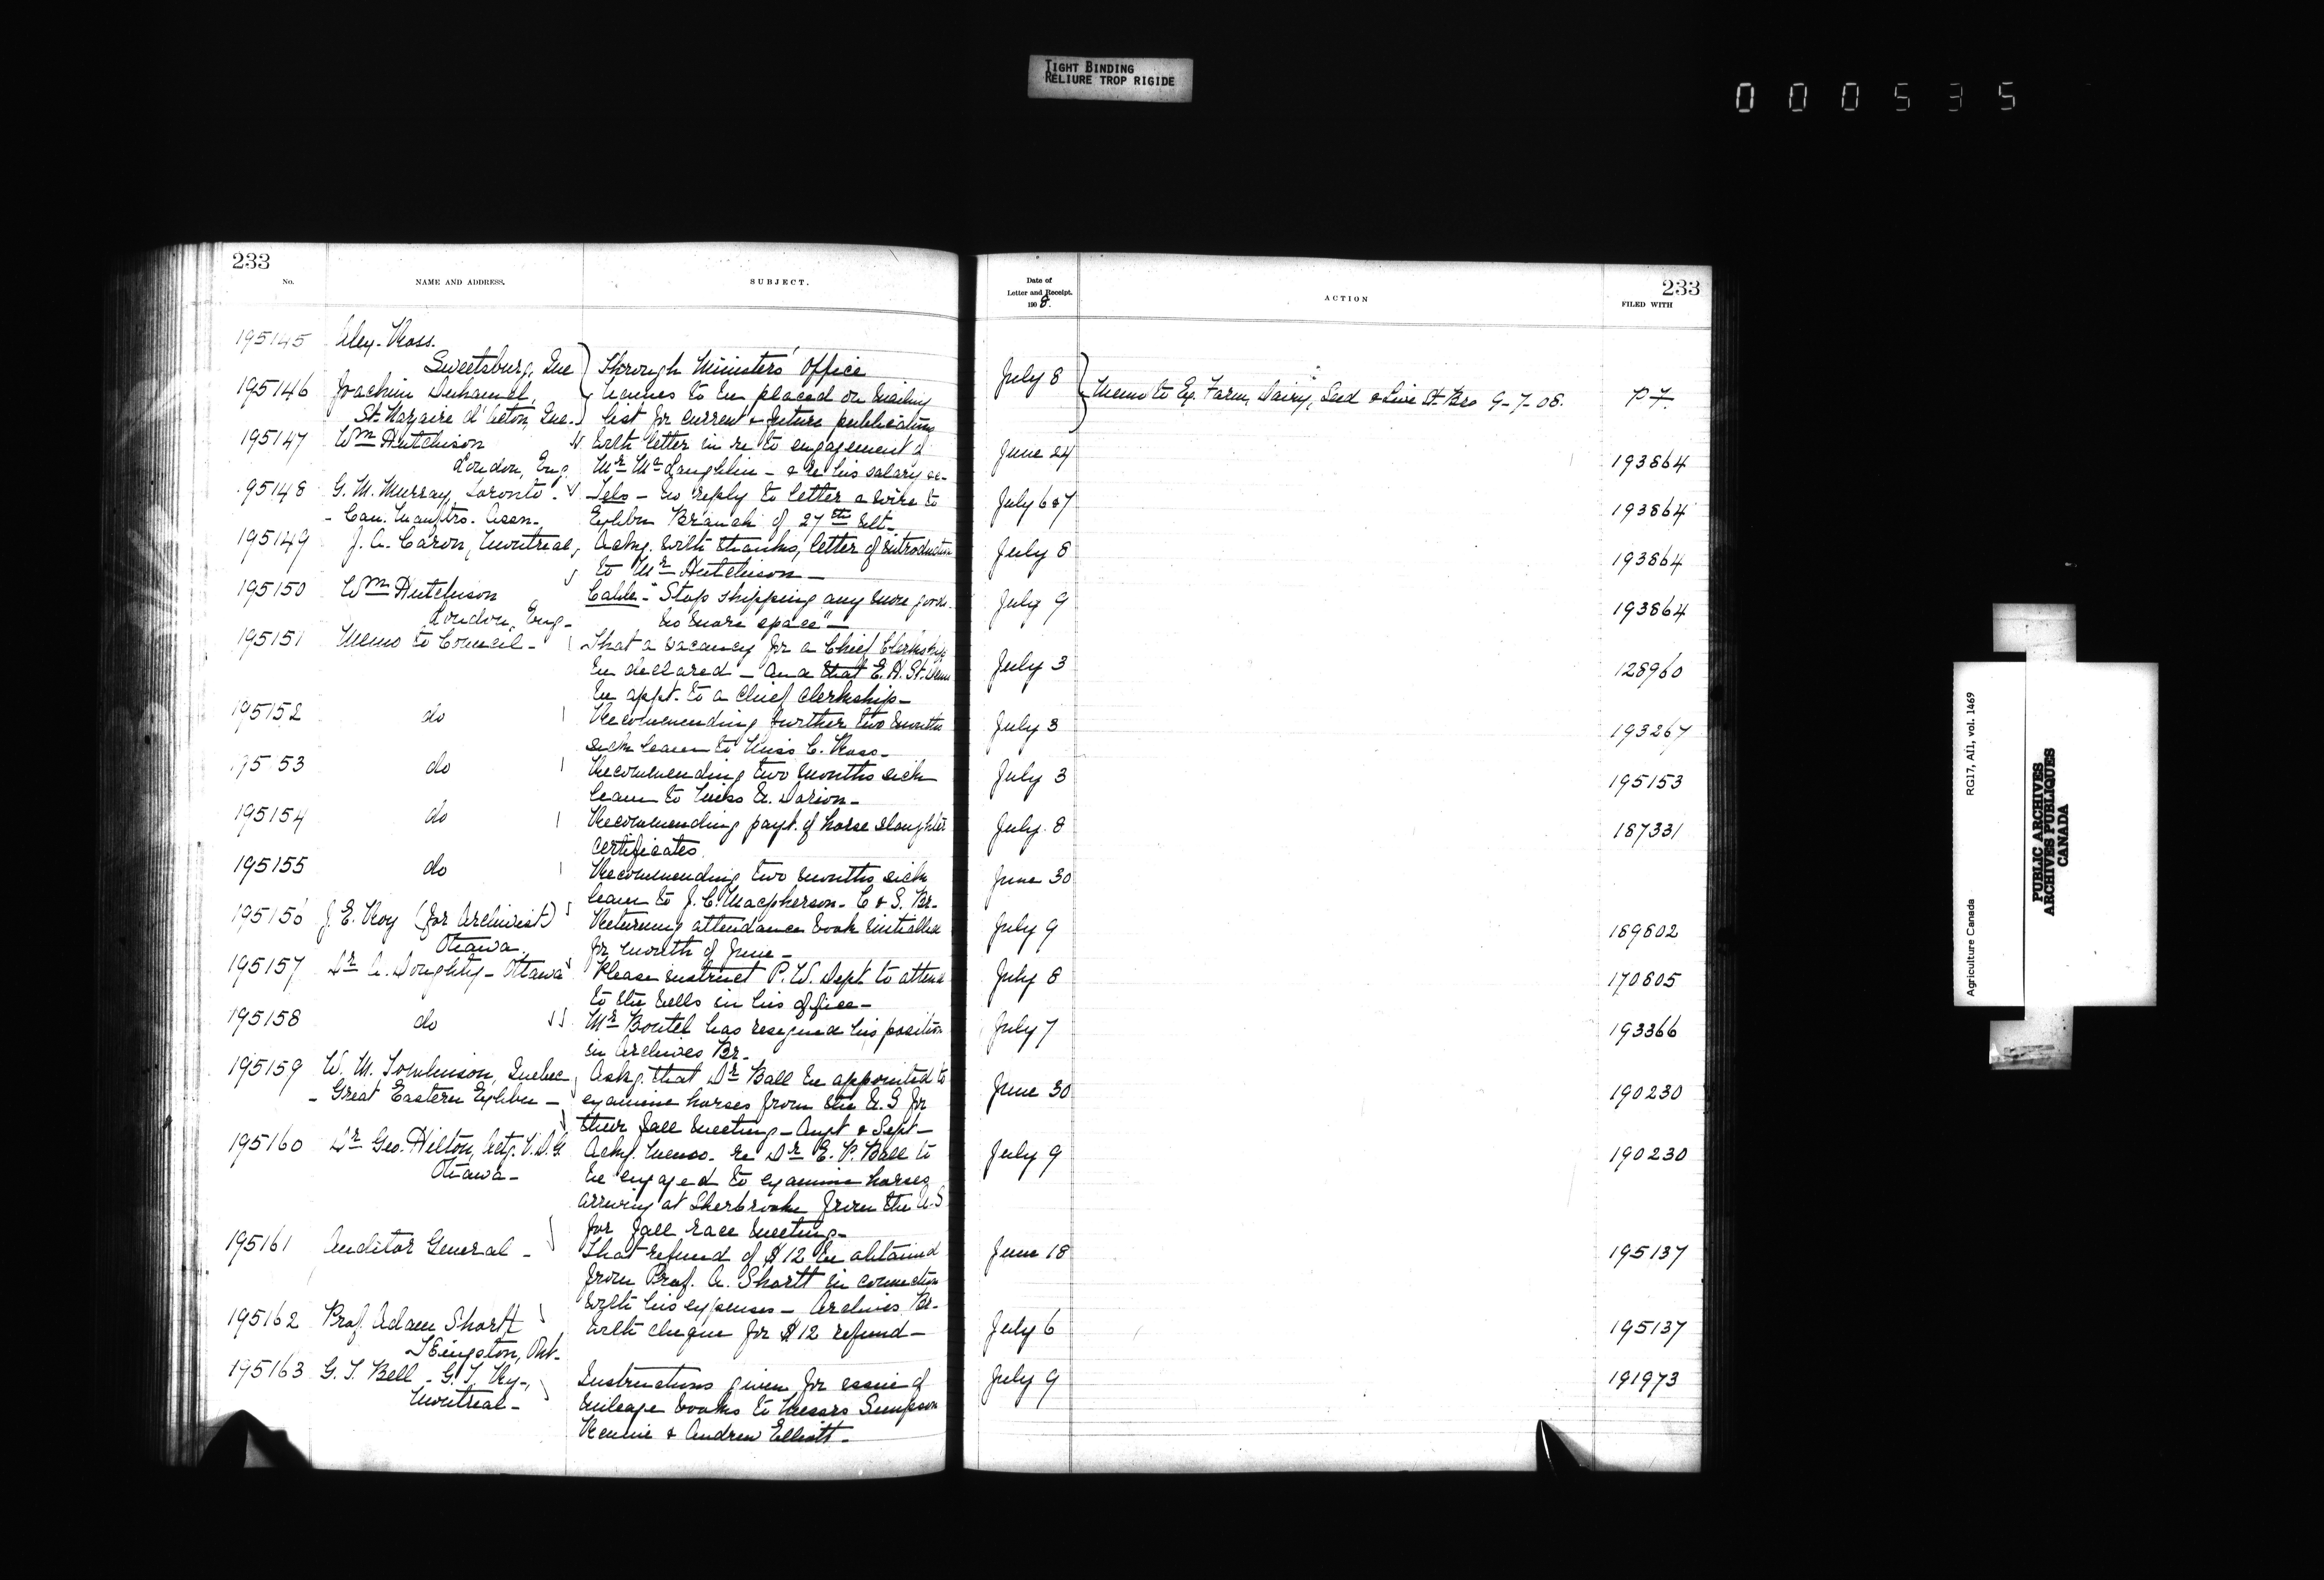 TIGHT BINDING
RELIURE TROP RIGIDE
000535
233
No.
NAME AND ADDRESS.
SUBJECT.
Date of
Letter and Receipt.
1908.
ACTION
233
FILED WITH
195145 Alex. Ross.
Sweetsburg, Que
Through Ministers' Office
195146 Joachim Duhamel,
St. Nazaire d'Acton, Que.
Names to be placed on mailing
list for current & future publications
July 8
Memo to Ex. Farm, Dairy, Seed & Live St. Brs 9-7-08.
P7.
195147 Wm Hutchison
London, Eng.
With letter in re to engagement of
Mr McLaughlin - & re his salary &c-
June 24
193864
195148 G. M. Murray, Toronto.
- Can. Manftrs. Assn.
Tels - no reply to letter & wire to
Exhbn Branch of 27th ult-
July 6&7
193864
195149 J. A. Caron, Montreal,
Ackg. with thanks, letter of introduction
to Mr Hutchison -
July 8
193864
195150 Wm Hutchison
London, Eng-
Cable - "Stop shipping any more goods.
no more space" -
July 9
193864
195151 Memo to Council -
That a vacancy for a Chief Clerkship
be declared - and that E. H. St. Denis
be appt. to a Chief Clerkship -
July 3
128960
195152 do
Recommending further two months
sick leave to Miss C. Ross -
July 3
193267
195153 do
Recommending two months sick
leave to Miss A. Dorion -
July 3
195153
195154 do
Recommending payt. of horse slaughter
certificates
July 8
187331
195155 do
Recommending two months sick
leave to J. C. Macpherson - C & S. Br-
June 30
195156 J. E. Roy (for Archivist)
Ottawa.
Returning attendance book initialled
for month of June -
July 9
189802
195157 Dr A. Doughty - Ottawa
Please instruct P. W. Dept. to attend
to the bells in his office -
July 8
170805
195158 do
Mr Boutel has resigned his position
in Archives Br-
July 7
193366
195159 W. M. Tomlinson, Quebec
- Great Eastern Exhbn -
Askg. that Dr Ball be appointed to
examine horses from the U.S for
their fall meeting - Augt & Sept -
June 30
190230
195160 Dr Geo. Hilton, Actg. V.D.G
Ottawa -
Ackg. memo. re Dr E. P. Ball to
be engaged to examine horses
arriving at Sherbrooke from the U.S
for fall race meeting -
July 9
190230
195161 Auditor General -
That refund of $12 be obtained
from Prof. A. Shortt in connection
with his expenses - Archives Br-
June 18
195137
195162 Prof. Adam Shortt
Kingston, Ont-
With cheque for $12 refund -
July 6
195137
195163 G. T. Bell - G. T. Ry-,
Montreal -
Instructions given for issue of
mileage books to Messrs Simpson
Rennie & Andrew Elliott -
July 9
191973
Agriculture Canada RG17, AI1, vol. 1469
PUBLIC ARCHIVES
ARCHIVES PUBLIQUES
CANADA